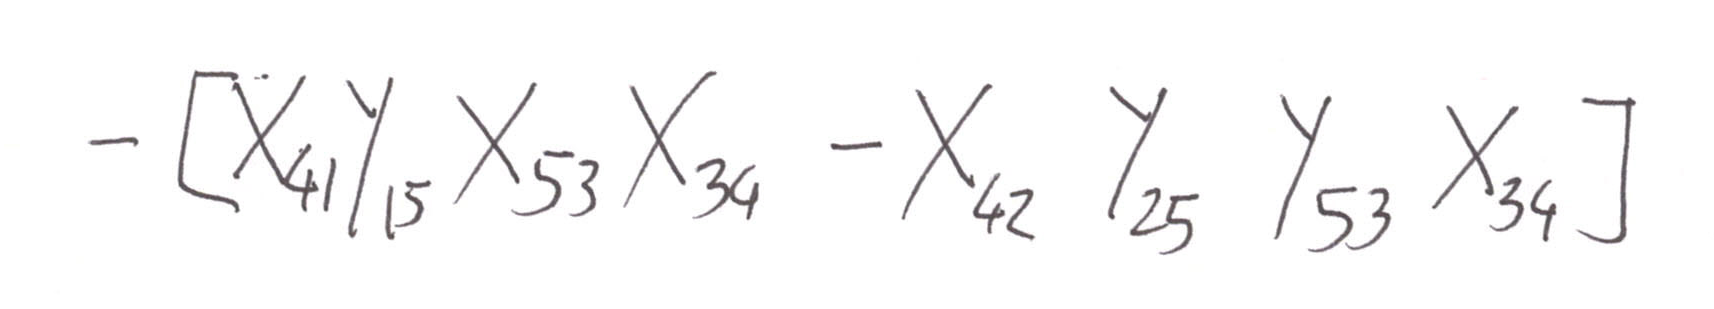 - [X_{41} Y_{15} X_{53} X_{34} - X_{42} Y_{25} Y_{53} X_{34}]